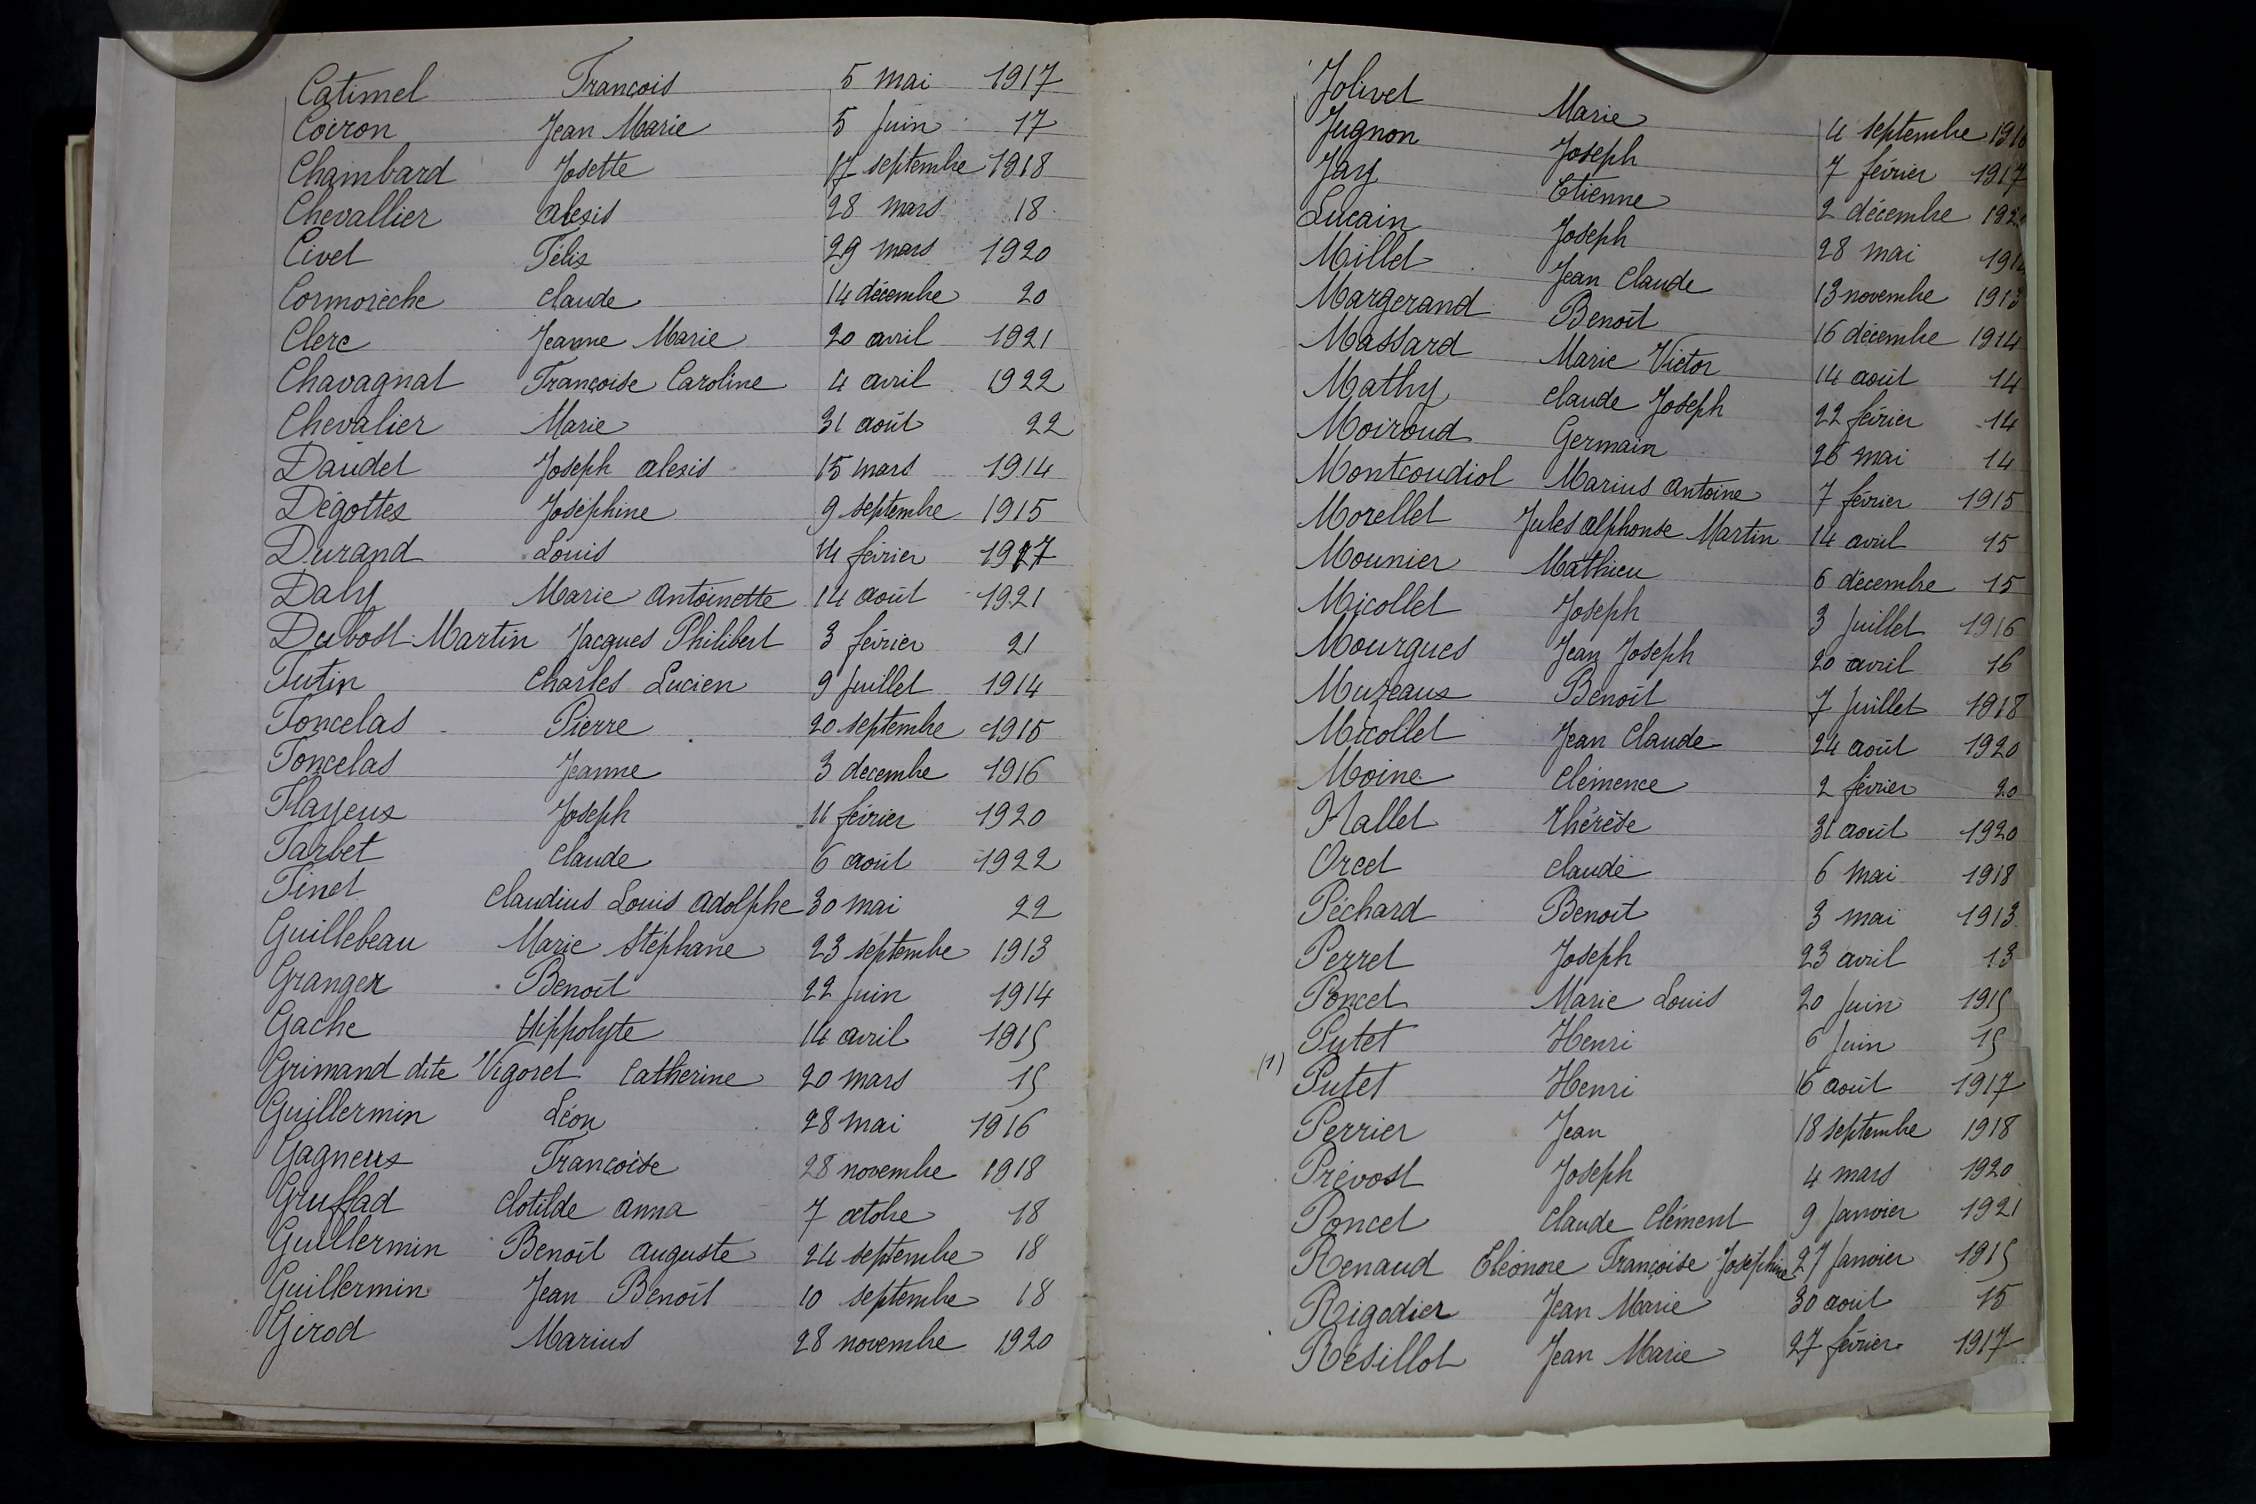 Catimel François 5 mai 1917
Coiron Jean Marie 5 juin 17
Chambard Josette 17 septembre 1918
Chevallier Alexis 28 mars 18
Civet Félix 29 mars 1920
Cormorèche Claude 14 décembre 20
Clerc Jeanne Marie 20 avril 1921
Chavagnat Françoise Caroline 4 avril 1922
Chevalier Marie 31 août 22
Daudet Joseph Alexis 15 mars 1914
Dégottex Joséphine 9 septembre 1915
Durand Louis 14 février 1917
Daly Marie Antoinette 14 août 1921
Dubost-Martin Jacques Philibert 3 février 21
Futin Charles Lucien 9 juillet 1914
Foncelas Pierre 20 septembre 1915
Foncelas Jeanne 3 décembre 1916
Flayeux Joseph 11 février 1920
Farbet Claude 6 août 1922
Finet Claudius Louis Adolphe 30 mai 22
Guillebeau Marie Stéphane 23 septembre 1913
Granger Benoît 22 juin 1914
Gache Hippolyte 14 avril 1915
Grimand dite Vigoret Catherine 20 mars 15
Guillermin Léon 28 mai 1916
Gagneux Françoise 28 novembre 1918
Gruffad Clotilde Anna 7 octobre 18
Guillermin Benoît Auguste 24 septembre 18
Guillermin Jean Benoît 10 septembre 18
Girod Marius 28 novembre 1920
Jolivet Marie 4 septembre
Jugnon Joseph 7 février 1917
Jay Etienne 2 décembre
Lucain Joseph 28 mai
Millet Jean Claude 13 novembre 1913
Margerand Benoît 16 décembre 1914
Massard Marie Victor 14 août 14
Mathy Claude Joseph 22 février 14
Moiroud Germain 26 mai 14
Montcoudiol Marius Antoine 7 février 1915
Morellet Jules Alphonse Martin 14 avril 15
Mounier Mathieu 6 décembre 15
Micollet Joseph 3 juillet 1916
Mourgues Jean Joseph 20 avril 16
Muzeaux Benoît 7 juillet 1918
Micollet Jean Claude 24 août 1920
Moine Clémence 2 février 20
Nallet Thérèse 31 août 1920
Orcet Claude 6 mai 1918
Péchard Benoît 3 mai 1913
Perret Joseph 23 avril 13
Poncet Marie Louis 20 juin 1915
Putet Henri 6 juin 15
(1) Putet Henri 16 août 1917
Perrier Jean 18 septembre 1918
Prévost Joseph 4 mars 1920
Poncet Claude Clément 9 janvier 1921
Renaud Eléonore Françoise Joséphine 27 janvier 1915
Rigodier Jean Marie 30 août 15
Résillot Jean Marie 27 février 1917